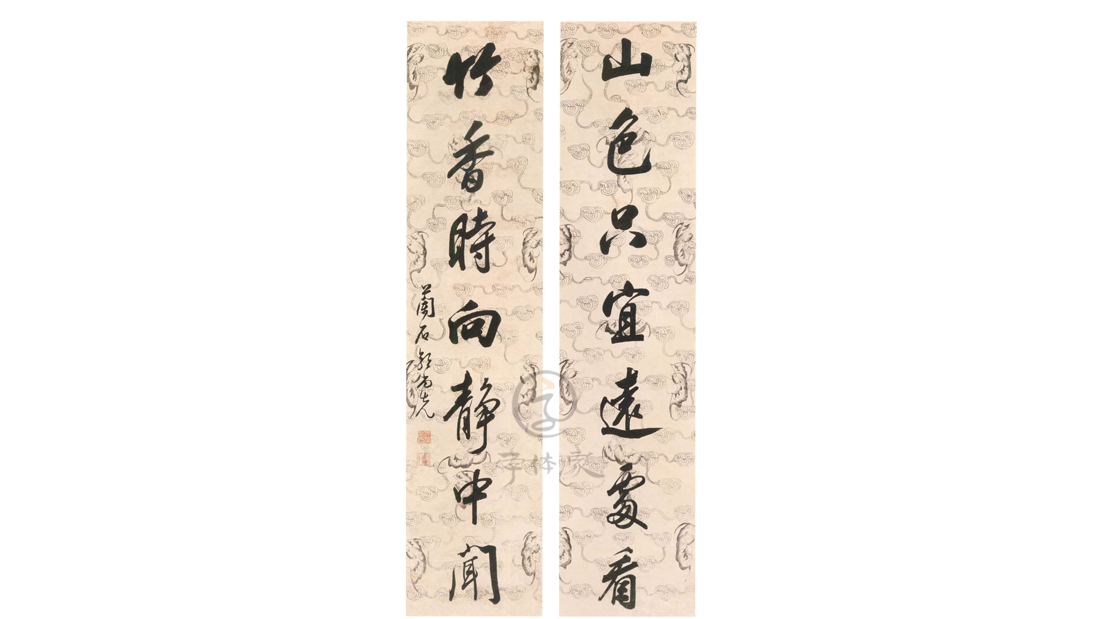 山色只宜遠處看
竹香時向靜中聞
蘭石郭尚先
字体家